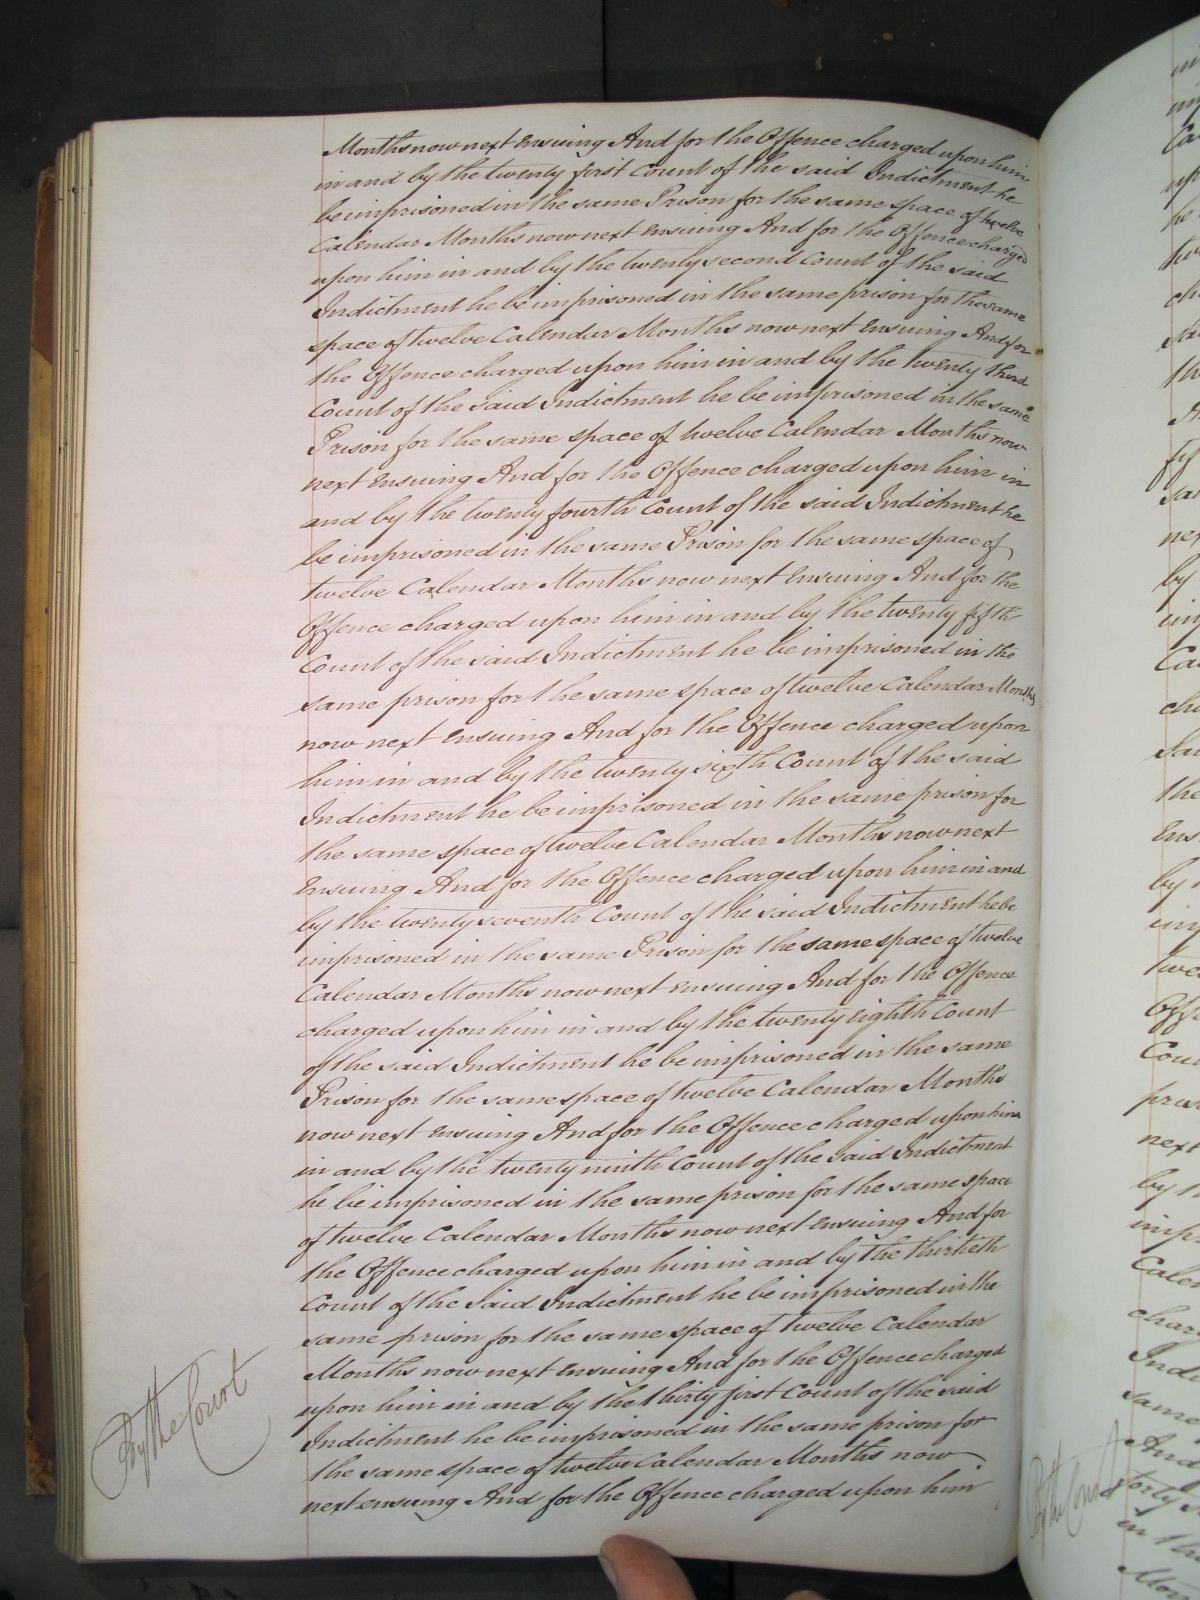 Months now next ensuing And for the Offence charged upon him
in and by the twenty first Count of the said Indictment he
be imprisoned in the same Prison for the same space of twelve
Calendar Months now next ensuing And for the Offence charged
upon him in and by the twenty second Count of the said
Indictment he be imprisoned in the same prison for the same
space of twelve Calendar Months now next ensuing And for
the Offence charged upon him in and by the twenty third
Count of the said Indictment he be imprisoned in the same
Prison for the same space of twelve Calendar Months now
next ensuing And for the Offence charged upon him in
and by the twenty fourth Count of the said Indictment he
be imprisoned in the same Prison for the same space of
twelve Calendar Months now next ensuing And for the
Offence charged upon him in and by the twenty fifth
Count of the said Indictment he be imprisoned in the
same prison for the same space of twelve Calendar Months
now next ensuing And for the Offence charged upon
him in and by the twenty sixth Count of the said
Indictment he be imprisoned in the same prison for
the same space of twelve Calendar Months now next
Ensuing And for the Offence charged upon him in and
by the twenty seventh Count of the said Indictment he be
imprisoned in the same Prison for the same space of twelve
Calendar Months now next ensuing And for the Offence
charged upon him in and by the twenty eighth Count
of the said Indictment he be imprisoned in the same
Prison for the same space of twelve Calendar Months
now next ensuing And for the Offence charged upon him
in and by the twenty ninth Count of the said Indictment
he be imprisoned in the same prison for the same space
of twelve Calendar Months now next ensuing And for
the Offence charged upon him in and by the thirtieth
Count of the said Indictment he be imprisoned in the
same prison for the same space of twelve Calendar
Months now next ensuing And for the Offence charged
upon him in and by the thirty first Count of the said
Indictment he be imprisoned in the same prison for
the same space of twelve Calendar Months now
next ensuing And for the Offence charged upon him
By the Court
By the Court